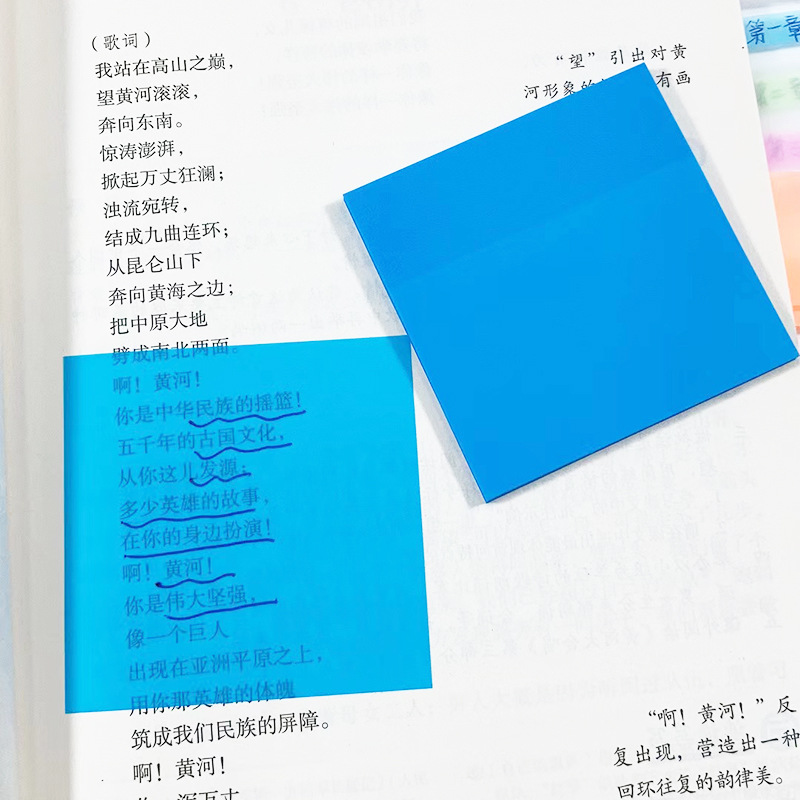 （歌词）
我站在高山之巅，
望黄河滚滚，
奔向东南。
惊涛澎湃，
掀起万丈狂澜；
浊流宛转，
结成九曲连环；
从昆仑山下
奔向黄海之边；
把中原大地
劈成南北两面。
啊！黄河！
你是中华民族的摇篮！
五千年的古国文化，
从你这儿发源；
多少英雄的故事，
在你的身边扮演！
啊！黄河！
你是伟大坚强，
像一个巨人
出现在亚洲平原之上，
用你那英雄的体魄
筑成我们民族的屏障。
啊！黄河！
“望”引出对黄
河形象的
有画
“啊！黄河！”反
复出现，营造出一种
回环往复的韵律美。
第一章